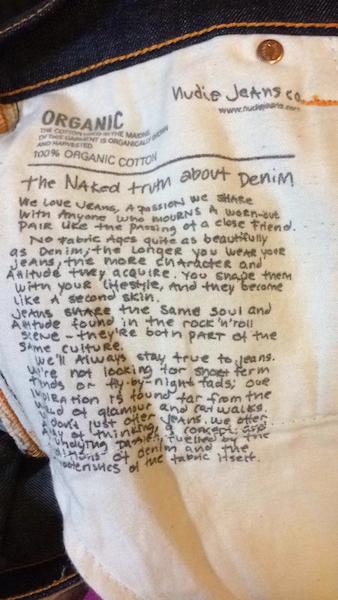 Nudie Jeans co.
www.nudiejeans.com
ORGANIC
THE COTTON USED IN THE MAKING
OF THIS GARMENT IS ORGANICALLY GROWN
AND HARVESTED
100% ORGANIC COTTON
the Naked truth about Denim
We Love Jeans, A passion we share
with Anyone who mourns a worn-out
pair like the passing of a close friend.
No fabric ages quite as beautifully
as Denim; the longer you wear your
jeans, the more character and
Attitude they acquire. You shape them
with your lifestyle, and they become
like a second skin.
Jeans share the same soul and
Attitude found in the rock'n'roll
scene - they're both part of the
same culture.
We'll Always stay true to jeans.
We're not looking for short term
or fly-by-night fads; our
is found far from the
of glamour and catwalks.
don't just offer Jeans. We offer
of thinking, a concept, and
fuelled by the
of denim and the
of the fabric itself.